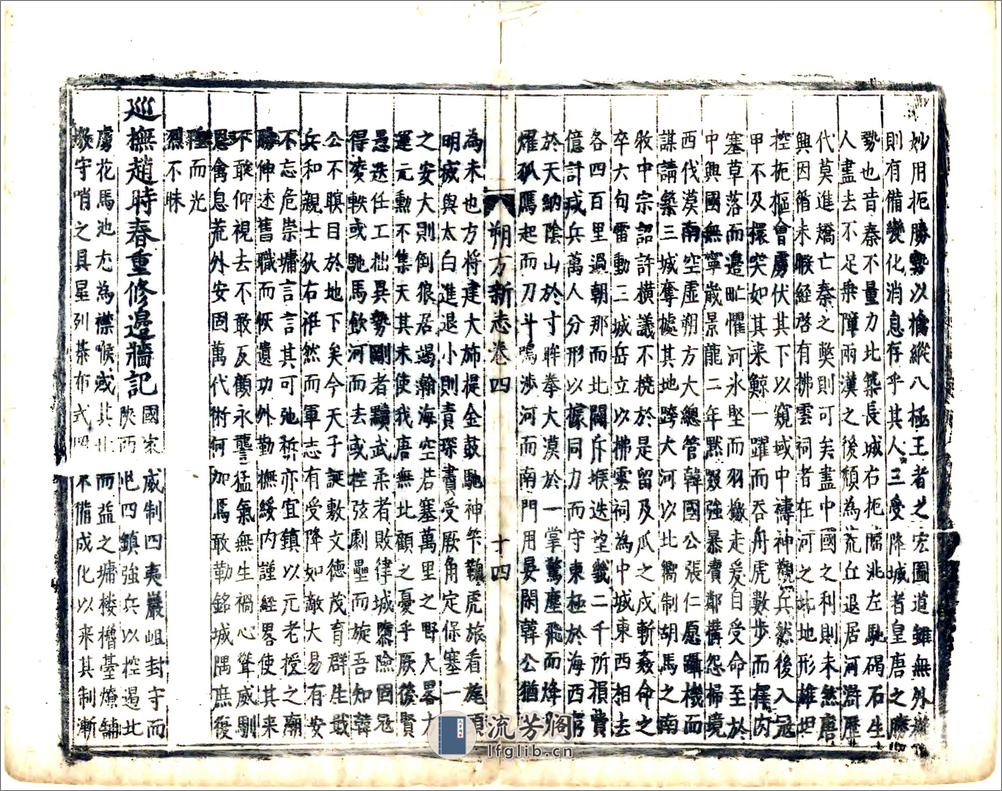 妙用扼勝勢以擒縱八極王者之宏圖道雖無外權
則有備變化消息存乎其人三受降城者皇唐之勝
勢也昔秦不量力北築長城右扼臨洮左馳碣石生
人盡去不足乘障兩漢之後頹為荒丘退居河滸歷
代莫進矯亡秦之獘則可矣盡中國之利則未然唐
興因循未暇經啓有拂雲祠者在河之北地形雄
控扼樞會虜伏其下以窺域中禱神觀兵然後入寇
甲不及擐突如其來鯨一躍而吞舟虎數步而擇肉
塞草落而邊甿懼河氷堅而羽檄走爰自受命至於
中興國無寧歲景龍二年默啜強暴瀆鄰搆怨掃境
西伐漠南空虛朔方大總管韓國公張仁愿躡機而
謀請築三城奪據其地跨大河以北制胡馬之南
牧中宗詔許橫議不撓於是留及瓜之戍斬姦命之
卒六旬雷動三城岳立以拂雲祠為中城東西相去
各四百里過朝那而北闢斥堠迭望幾二千所損費
億計戍兵萬人分形以據同力而守東極於海西窮
於天納陰山於寸眸拳大漠於一掌驚塵飛而烽火
耀孤鴈起而刀斗鳴涉河而南門用晏閉韓公猶以
朔方新志卷四 十四
為未也方將建大斾提金鼓馳神筭鞭虎旅看旄頭
明滅與太白進退小則責琛賮受厥角定保塞一隅
之安大則倒狼居竭瀚海空苔塞萬里之野大畧方
運元勳不集天其未使我唐無北顧之憂乎厥後賢
愚迭任工拙異勢剛者黷武柔者敗律城隳險固冠
得淩軼或馳馬飲河而去或控弦劇壘而旋吾知韓
公不瞑目於地下矣今天子誕敷文德茂育群生戢
兵和親士狄右袵然而軍志有受降如敵大易有安
不忘危崇墉言言其可弛柝亦宜鎮以元老授之廟
勝伸述舊職而恢遺功外勤撫綏內謹經畧使其來
不敢仰視去不敢反顧永讋猛氣無生禍心聳威馴
恩禽息荒外安固萬代術何加焉敢勒銘城隅庶後
而光
烈不昧
巡撫趙時春重修邊牆記 國家威制四夷巖岨封守而
陝西屯四鎮強兵以控遏北
虜花馬池尤為襟喉或其北而益之墉樓櫓臺燎舖
墩守哨之具星列棊布式罔不備成化以來其制漸